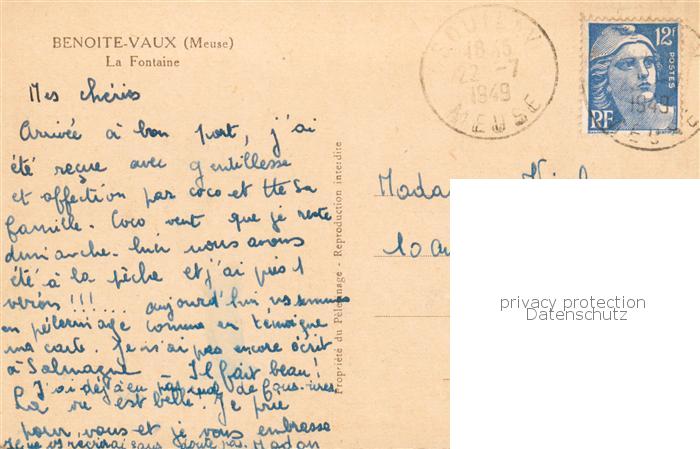 BENOITE-VAUX (Meuse)
La Fontaine
Mes chéries
Arrivée à bon port, j'ai
été reçue avec gentillesse
et affection par coco et tte sa
famille. Coco veut que je reste
dimanche. hier nous avons
été à la pêche et j'ai pris 1
veron !!! ... aujourd'hui ns sommes
en pélerinage comme en témoigne
ma carte. Je n'ai pas encore écrit
à Salmagne - Il fait beau!
J'ai déjà eu pas mal de
La vie est belle. Je prie
pour vous et je vous embrasse
Je ne vs récrirai sans doute pas.
Propriété du Pèlerinage - Reproduction interdite
SOUILLY
18 45
22 -7
1949
MEUSE
12F
POSTES
RF
1949
Mada
10 au
privacy protection
Datenschutz